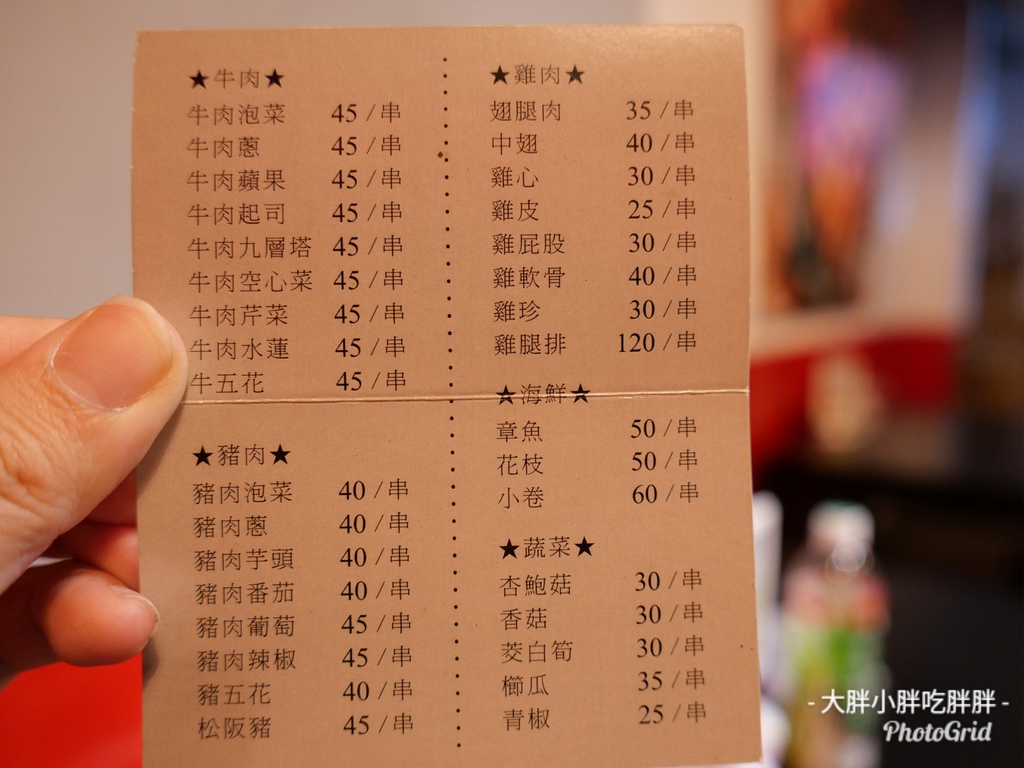 ★牛肉★
牛肉泡菜 45/串
牛肉蔥 45/串
牛肉蘋果 45/串
牛肉起司 45/串
牛肉九層塔 45/串
牛肉空心菜 45/串
牛肉芹菜 45/串
牛肉水蓮 45/串
牛五花 45/串
★豬肉★
豬肉泡菜 40/串
豬肉蔥 40/串
豬肉芋頭 40/串
豬肉番茄 40/串
豬肉葡萄 45/串
豬肉辣椒 45/串
豬五花 40/串
松阪豬 45/串
★雞肉★
翅腿肉 35/串
中翅 40/串
雞心 30/串
雞皮 25/串
雞屁股 30/串
雞軟骨 40/串
雞珍 30/串
雞腿排 120/串
★海鮮★
章魚 50/串
花枝 50/串
小卷 60/串
★蔬菜★
杏鮑菇 30/串
香菇 30/串
茭白筍 30/串
櫛瓜 35/串
青椒 25/串
- 大胖小胖吃胖胖 -
PhotoGrid